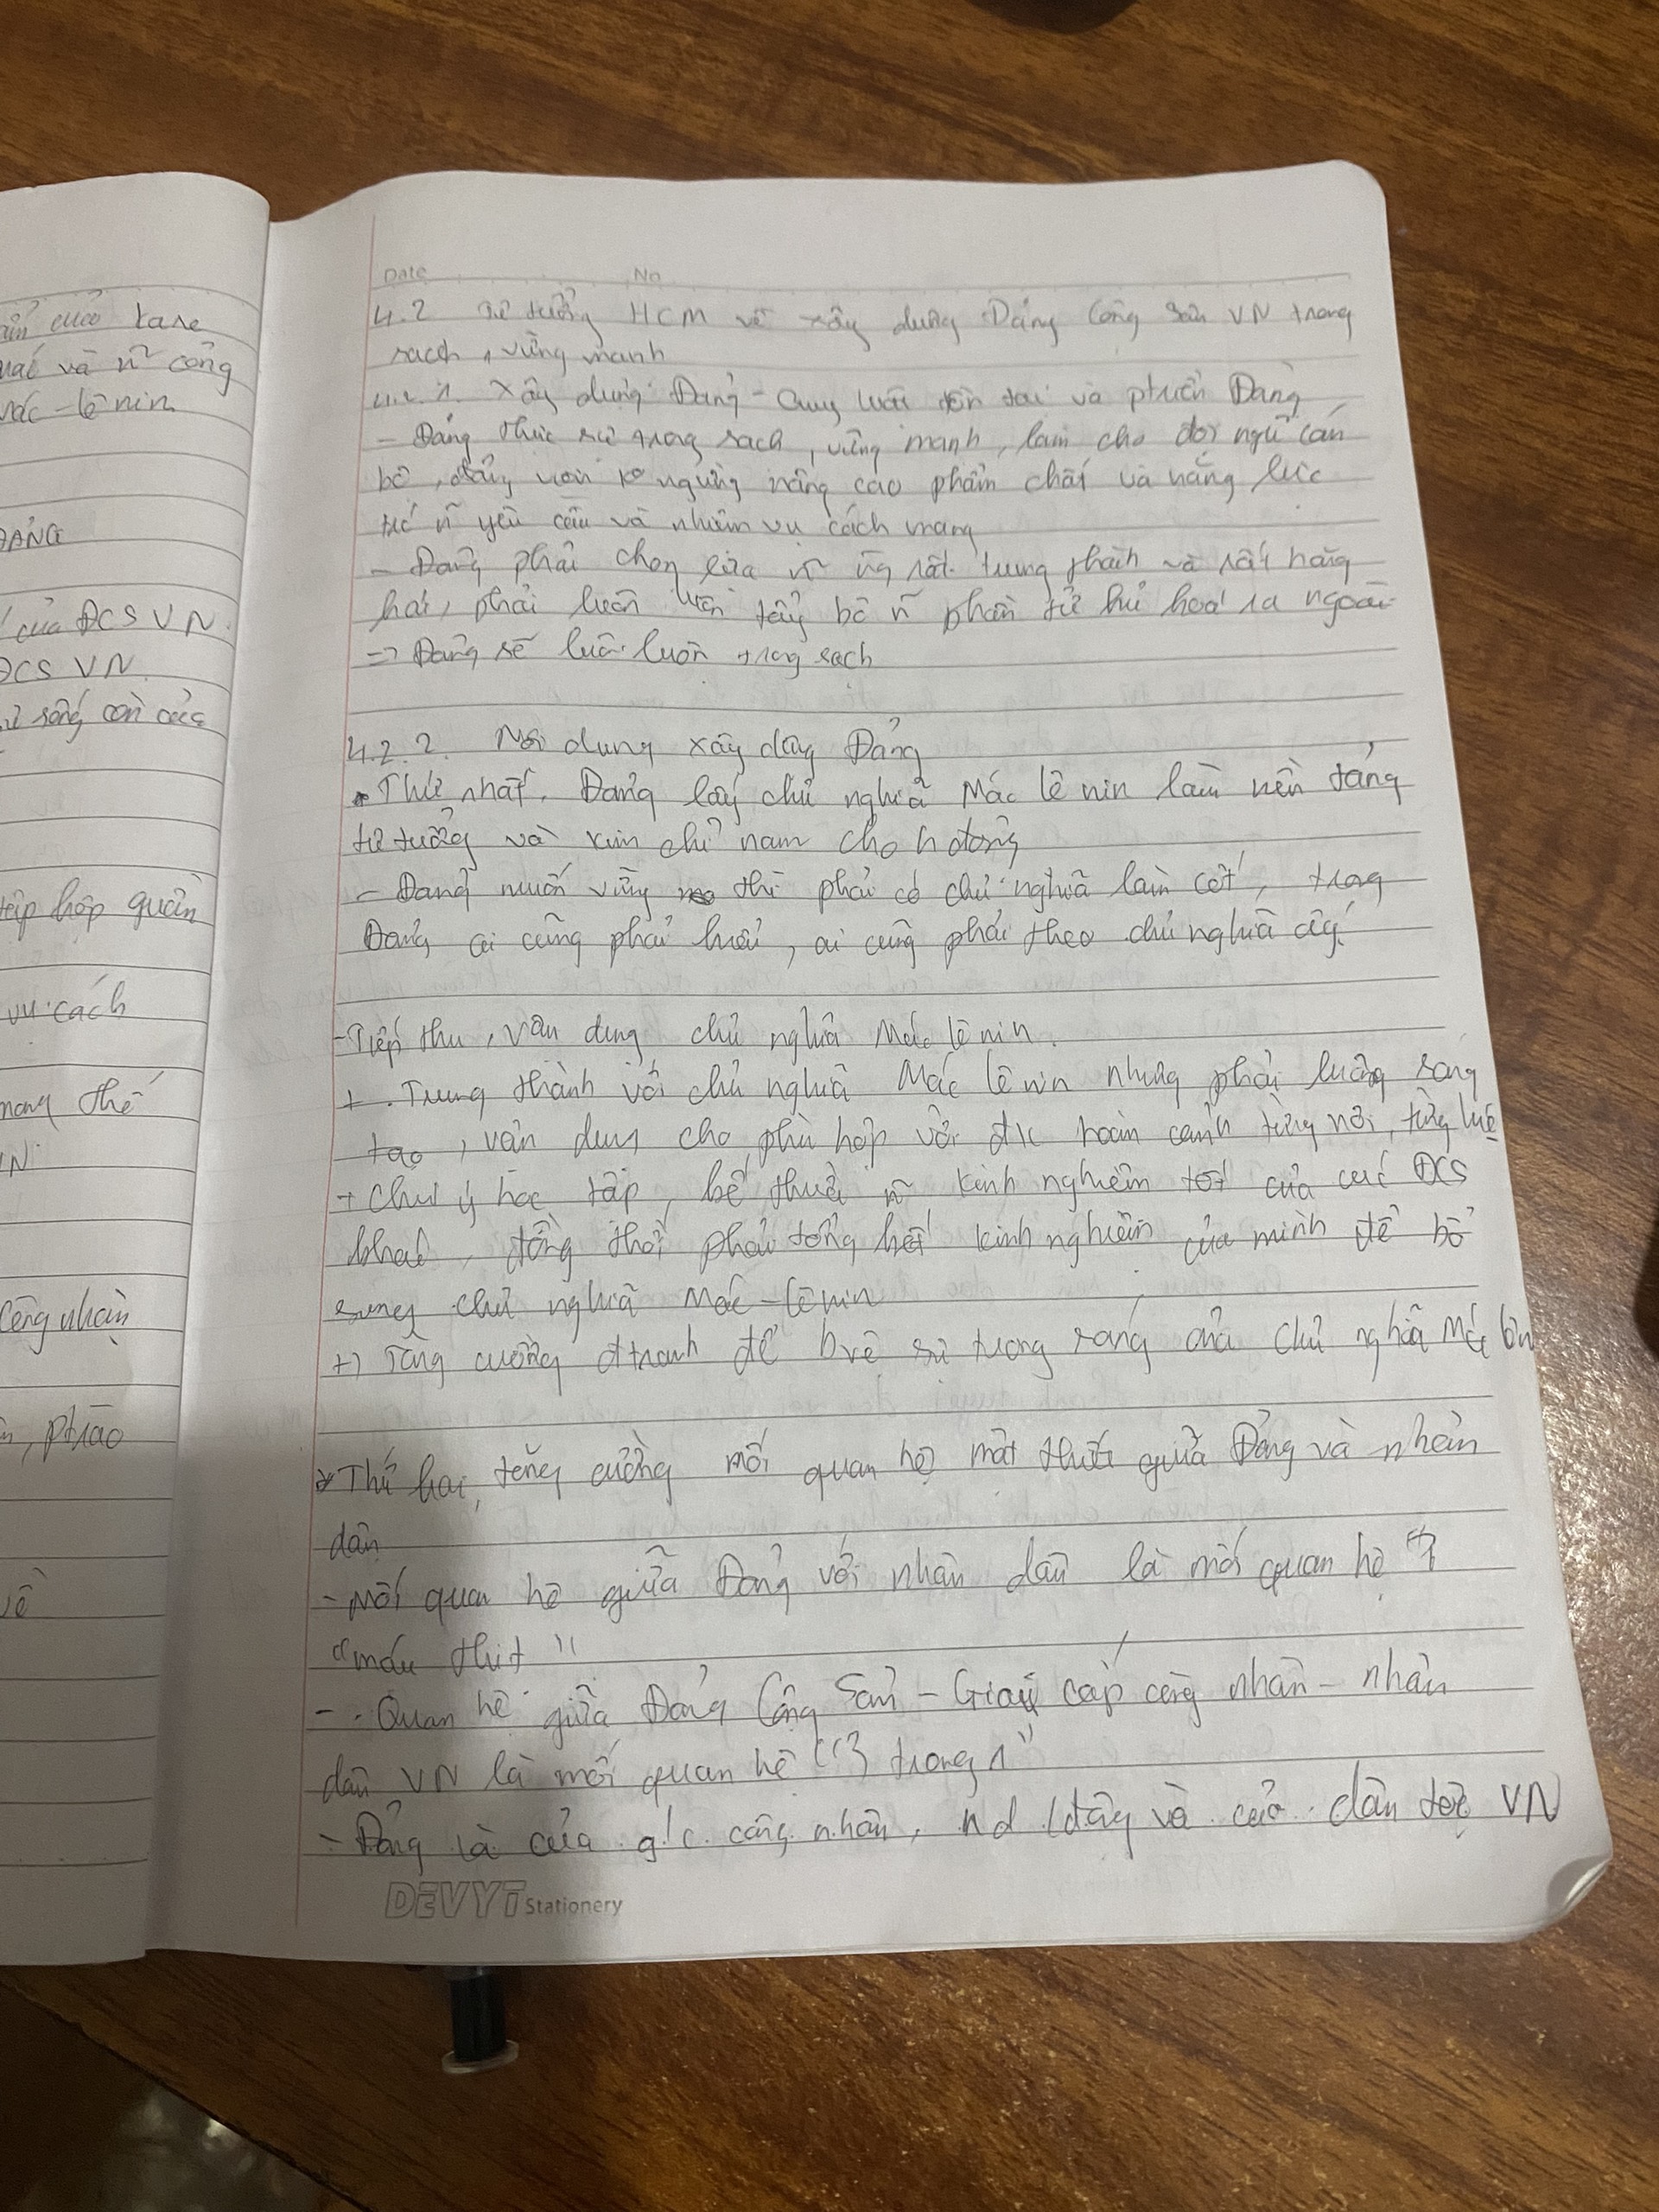 ĐẢNG
của ĐCS VN
ĐCS VN
sống còn của
tập hợp quần
vụ cách
mang thế
VN
Công nhân
và ñ công
Mác - lê nin
Date No
4.2 Tư tưởng HCM về xây dựng Đảng Cộng Sản VN trong
sạch, vững mạnh
4.2.1. Xây dựng Đảng - Quy luật tồn tại và ptriển Đảng
- Đảng thực sự trong sạch, vững mạnh, làm cho đội ngũ cán
bộ, đảng viên ko ngừng nâng cao phẩm chất và năng lực
ñ yêu cầu và nhiệm vụ cách mạng
- Đảng phải chọn lựa ñ ng rất trung thành và rất hăng
hái, phải luôn luôn tẩy bỏ ñ phần tử hủ hoá ra ngoài
=> Đảng sẽ luôn luôn trong sạch
4.2.2. Nội dung xây dựng Đảng
Thứ nhất, Đảng lấy chủ nghĩa Mác lê nin làm nền tảng
tư tưởng và kim chỉ nam cho h động
- Đảng muốn vững thì phải có chủ nghĩa làm cốt, trong
Đảng ai cũng phải hiểu, ai cũng phải theo chủ nghĩa ấy.
- Tiếp thu, vận dụng chủ nghĩa Mác lê nin.
+ . Trung thành với chủ nghĩa Mác lê nin nhưng phải luông sáng
tạo, vận dụng cho phù hợp với đk hoàn cảnh từng nơi, từng lúc
+ Chú ý học tập, kế thừa ñ kinh nghiệm tốt của các ĐCS
khác, đồng thời phải tổng kết kinh nghiệm của mình để bổ
sung chủ nghĩa Mác - Lênin
+) Tăng cường đtranh để bvệ sự trong sáng của chủ nghĩa Mác lên
* Thứ hai, tăng cường mối quan hệ mật thiết giữa Đảng và nhân
dân
- Mối quan hệ giữa Đảng với nhân dân là mối quan hệ
"máu thịt"
- . Quan hệ giữa Đảng Cộng Sản - Giai cấp công nhân - nhân
dân VN là mối quan hệ "3 trong 1"
- Đảng là của g/c công nhân, nd lđộng và của dân tộc VN
DEVYT Stationery